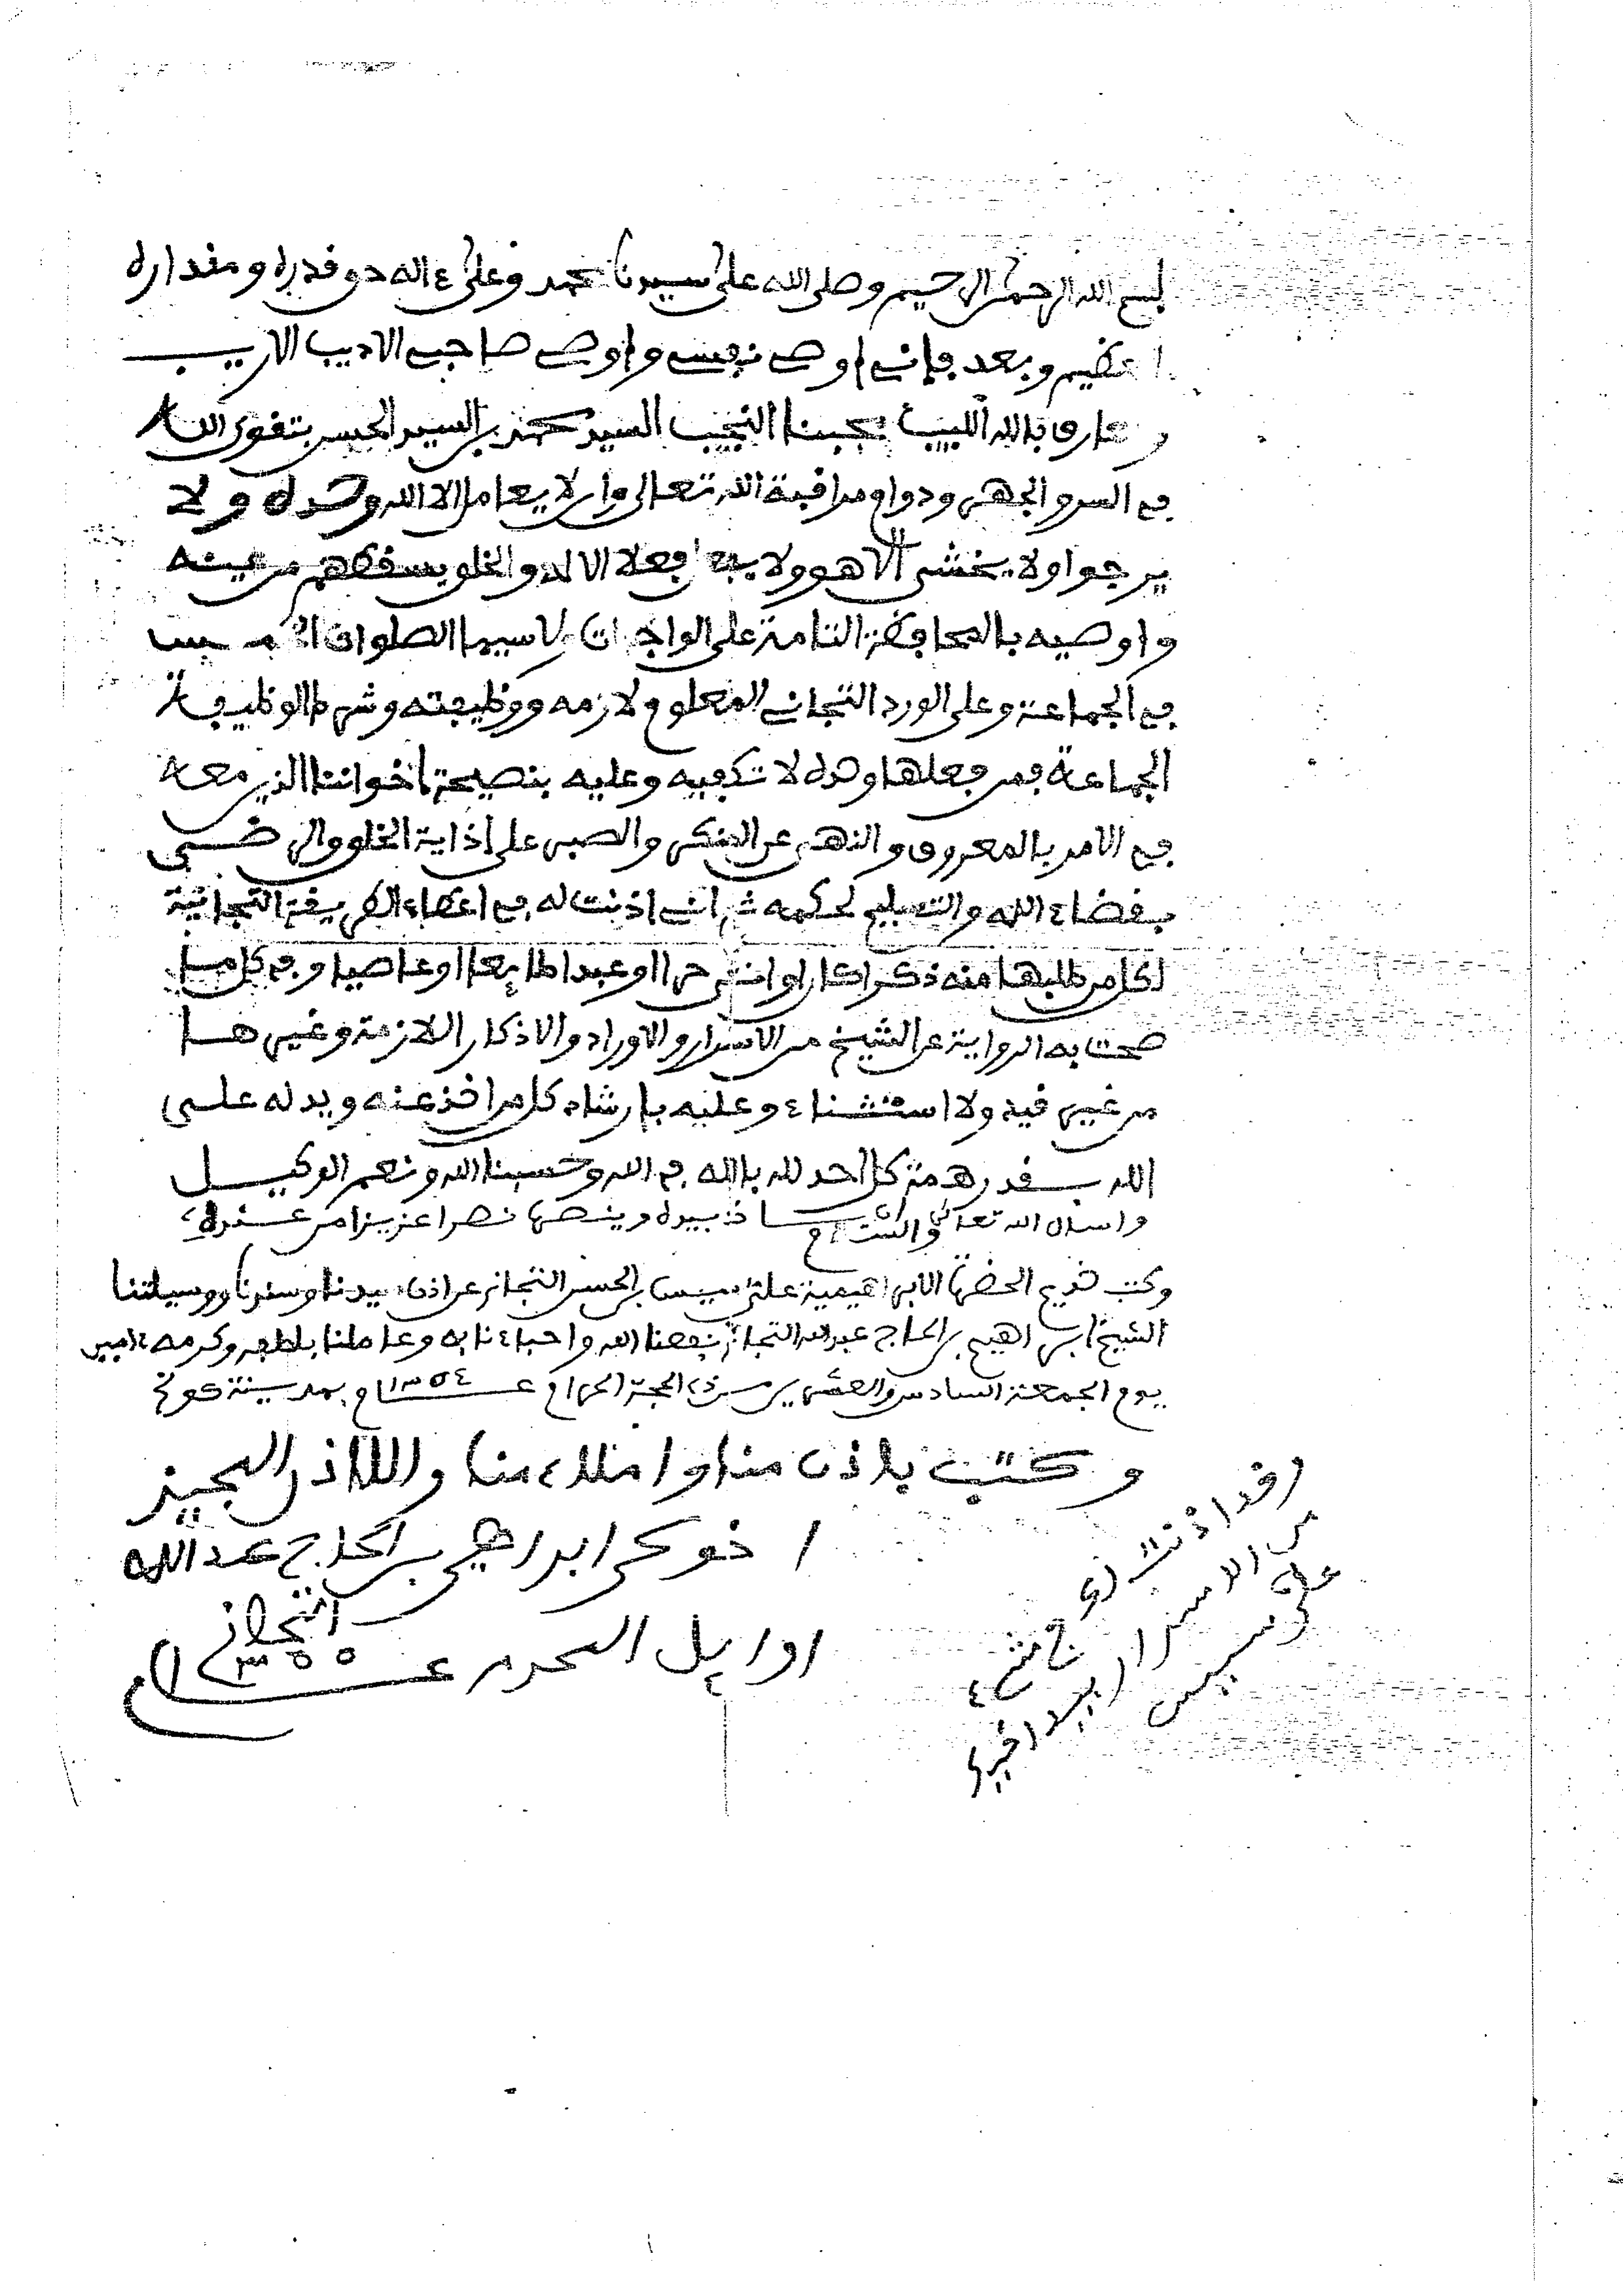 بسم الله الرحمن الرحيم وصلى الله على سيدنا محمد وعلى ءاله حق قدره ومقداره
العظيم وبعد فإني اوصي نفسي واوصي صاحبي الاديب الاريب
العارف بالله اللبيب محبنا النجيب السيد محمد بن السيد الحسن بتقوى الله
في السر والجهر ودوام مراقبة الله تعالى وان لا يعامل الا الله وحده ولا
يرجوا ولا يخشى الا هو ولا يرى فعلا الا له والخلق يسقطهم من عينه
واوصيه بالمحافظة التامة على الواجبات لا سيما الصلوات الخمس
في الجماعة وعلى الورد التجاني المعلوم لازمه ووظيفته وشرط الوظيفة
الجماعة فمن فعلها وحده لا تكفيه وعليه بنصيحة اخواننا الذين معه
في الامر بالمعروف والنهي عن المنكر والصبر على إذاية الخلق والرضى
بقضاء الله والتسليم لحكمه ثم اني اذنت له في اعطاء الطريقة التجانية
لكل من طلبها منه ذكرا كان او انثى حرا او عبدا طايعا او عاصيا وفي كل ما
صحت به الرواية عن الشيخ من الاسرار والاوراد والاذكار اللازمة وغيرها
من غير قيد ولا استثناء وعليه بإرشاد كل من اخذ عنه ويدله على
الله بقدر همة كل احد لله بالله في الله وحسبنا الله ونعم الوكيل
واسال الله تعالى ان ياخذ بيده وينصره نصرا عزيزا من عنده
والسلام
وكتب خديم الحضرة الابراهيمية علي سيس بن الحسن التجاني عن اذن سيدنا وسندنا ووسيلتنا
الشيخ ابراهيم بن الحاج عبد الله التجاني نفعنا الله واحباءنا به وعاملنا بلطفه وكرمه ءامين
يوم الجمعة السادس والعشرين من ذي الحجة الحرام عــام ١٣٥٤ بمدينة كولخ
وكتب بإذن منا واملاء منا والاذن المجيز
اخوكم ابراهيم بن الحاج عبد الله
التجاني
اوايل المحرم عــام ١٣٥٥
وقد اذنت لك
من الاسرار
علي سيس